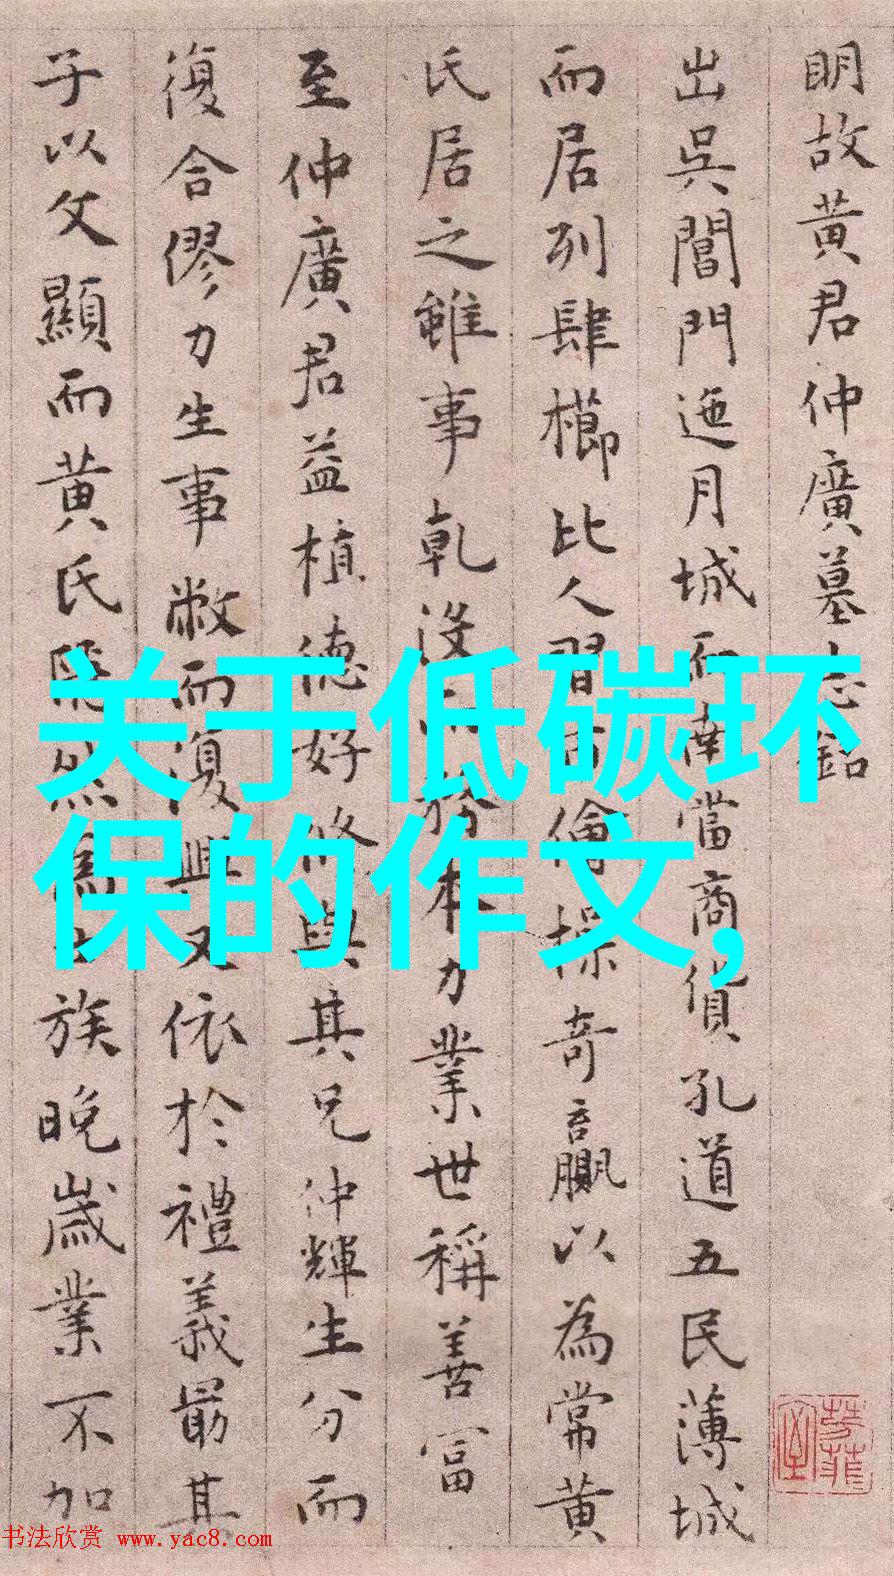 明故黄君仲廣墓志銘
出吳閶門迤月城而南當商貨孔道五民薄城
而居列肆櫛比人習市儈操奇贏以為常黄
氏居之雖事乾没務本力業世稱善富
至仲廣君益植德好脩與其兄仲輝生分而
復合僇力生事敝而復興又依於禮義勗其
子以文顯而黄氏然為士族晚歲業不加
关于低碳环保的作文,
书法欣赏 www.yac8.com